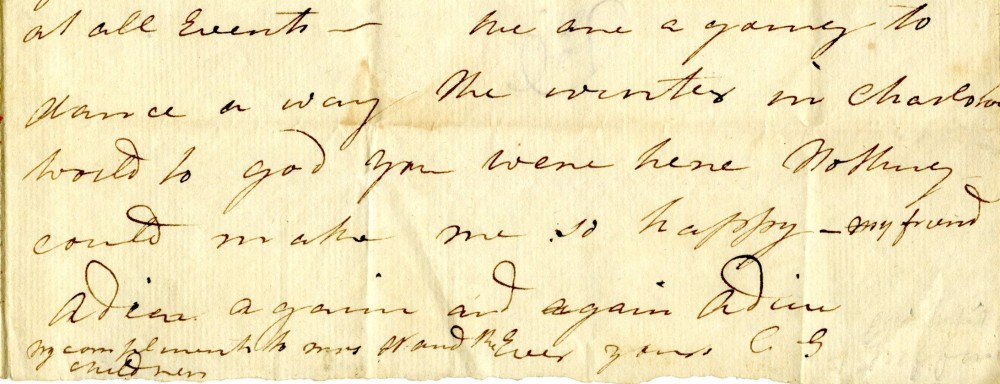 at all Events – We are a goiney to
dance a way the winter in Charlston
would to god you were here Nothing
could make me so happy – my friend
Adieu again and again Adieu
my compliments to mrs W and the Ever yours C G
children